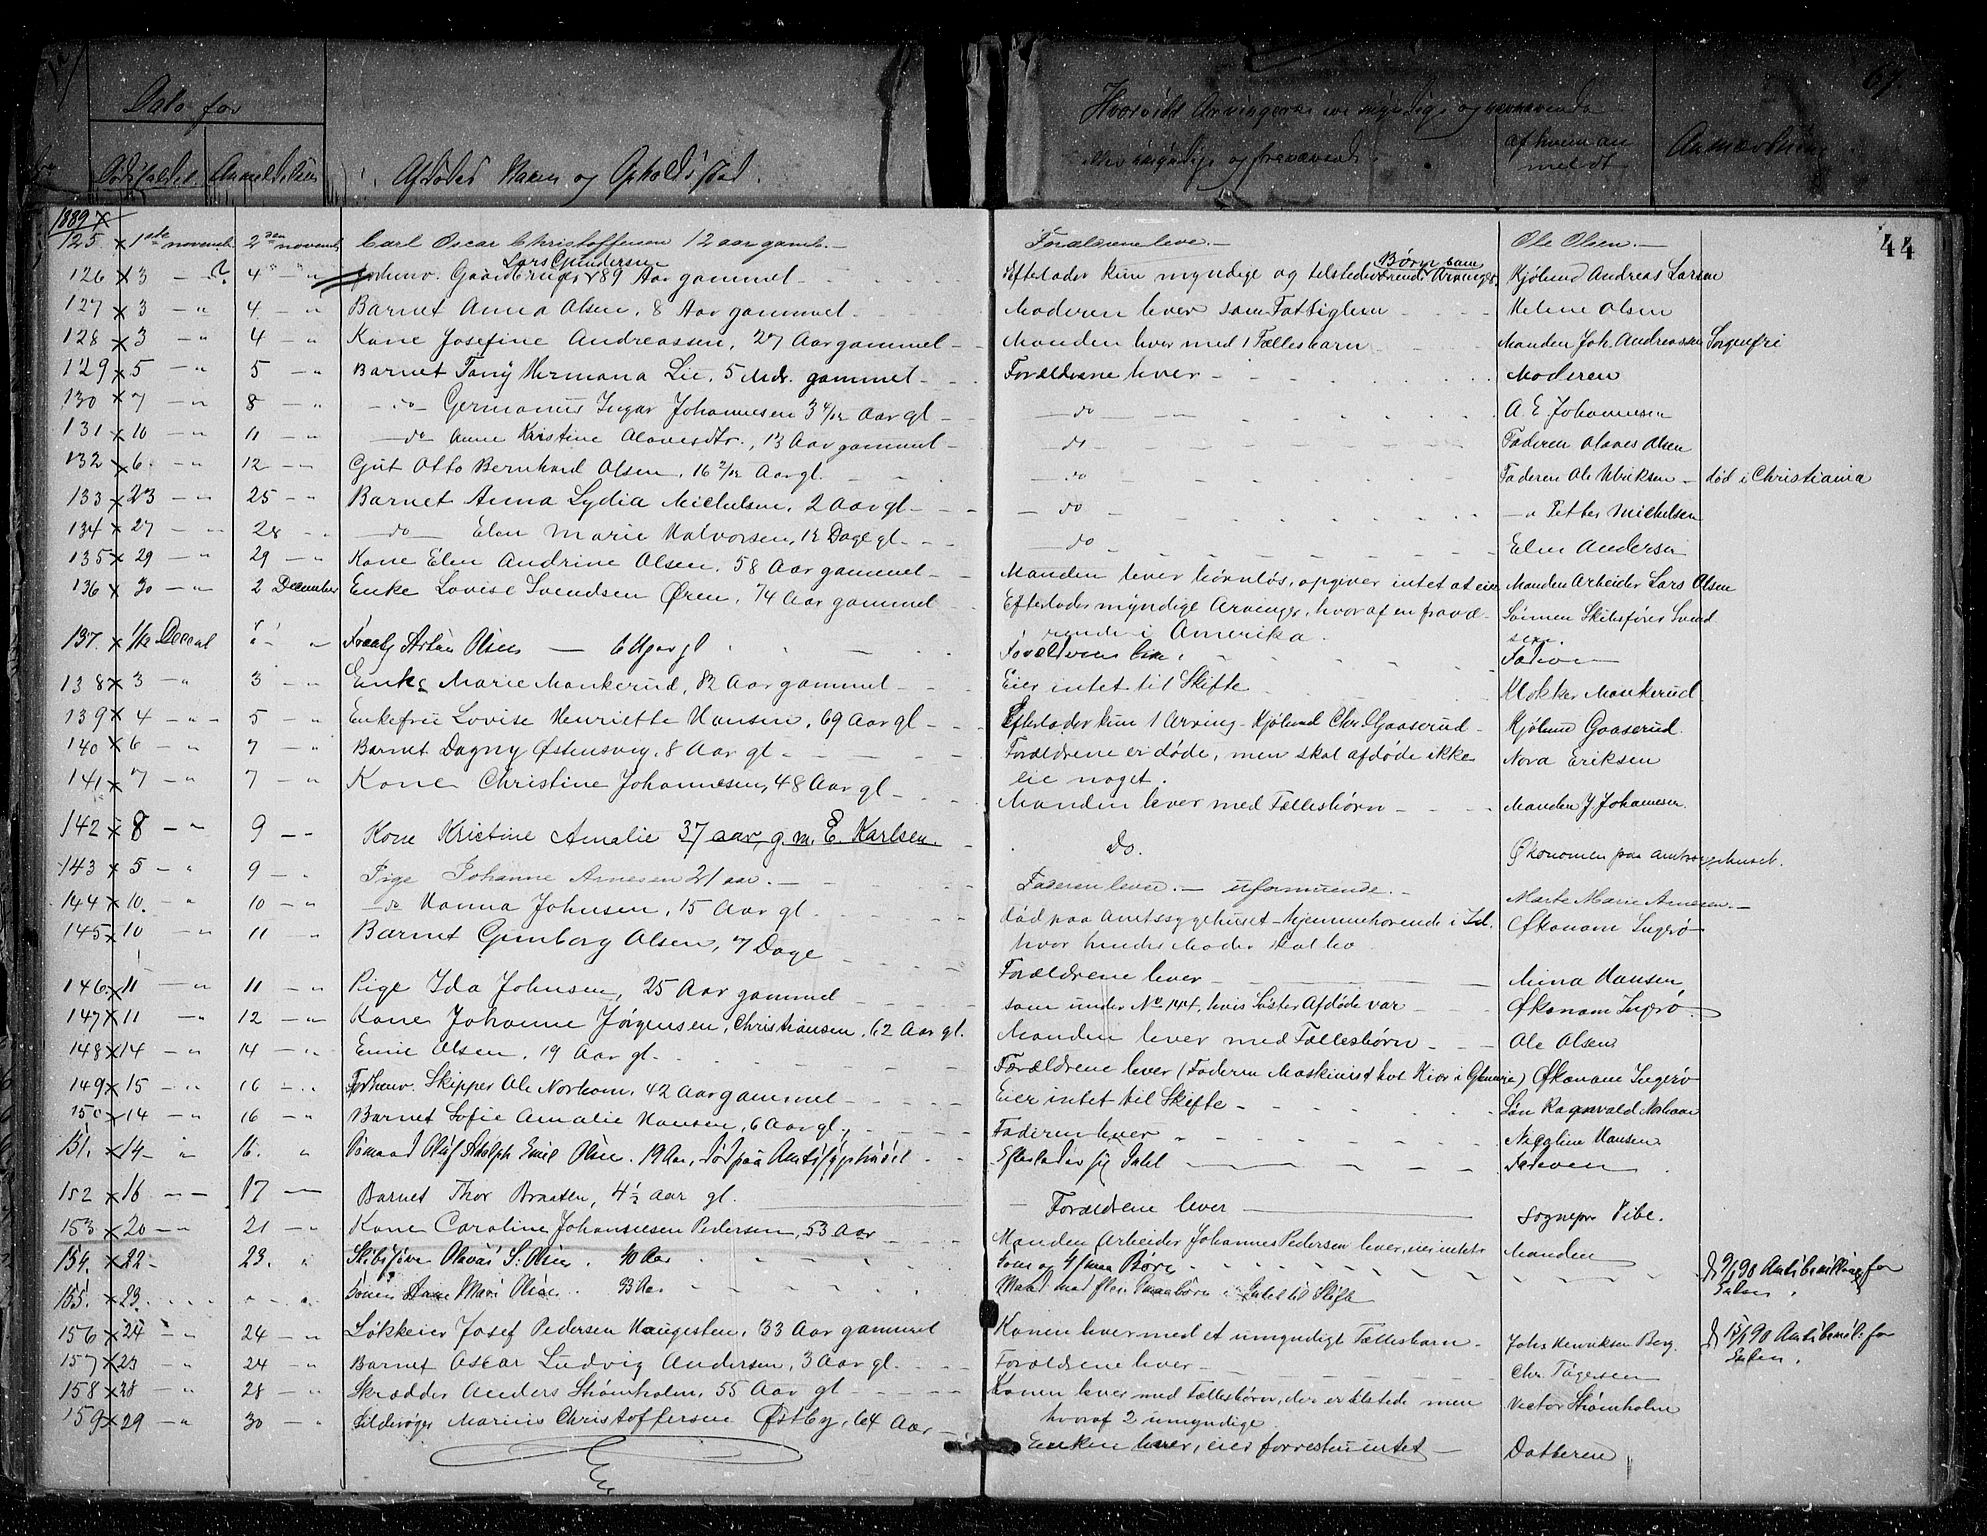 67.
Dato for
Dødsfaldet. Anmeldelsen
Afdødes Navn og Opholdssted.
Hvorvidt Arvingerne ere myndige og nærværende
eller umyndige og fraværende.
af hvem an
meldt
Anmærkning
44
1889
125. 1ste novemb 2den novemb Carl Oscar Christoffersen 12 aar gaml. Forældrene leve. Ole Olsen.
Lars Gundersen Børn som
126 3 — ? 4 — " forhenv. Gaardbruger 89 Aar gammel Efterlader kun myndige og tilstedeværende Arvinger. Kjølund Andreas Larsen
127 3 — " 4 — " Barnet Anna Olsen, 8 Aar gammel Moderen lever som Fattiglem Helene Olsen
128 3 — " 4 — " Kone Josefine Andreassen, 27 Aar gammel Manden lever med 1 Fællesbarn Manden Joh. Andreassen Sorgenfri
129 5 — " 5 — " Barnet Fany Hermana Lie, 5 Mdr. gammel Forældrene lever Moderen
130 7 — " 8 — " — do — Germanus Ingar Johannesen 3 4/12 Aar gl — do — A. E. Johannesen
131 10 — " 11 — " — do — Anne Kristine Olavesdtr., 13 Aar gammel do Faderen Olaves Olsen
132 6. — " 12 — " Gut Otto Bernhard Olsen, 16 2/12 Aar gl. — do Faderen Ole Ulriksen — død i Christiania
133 23 — " 25 — " Barnet Anna Lydia Michelsen, 2 Aar gl — do — " Petter Michelsen
134 27 — " 28 — do — Elen Marie Halvorsen, 12 Dage gl. — do Elen Andersen
135 29 — " 29 — " Kone Elen Andrine Olsen, 58 Aar gammel Manden lever børnløs, opgiver intet at eie Manden Arbeider Lars Olsen
136 30 — " 2 December Enke Lovise Svendsen Øren, 74 Aar gammel Efterlader myndige Arvinger, hvoraf en fravæ- Sønnen Skibsfører Svend
rende i Amerika. sen.
137. 1/12 Decemb " " Olsen — 6 Uger gl Forældrene leve. Faderen
138 3 — " 3 — " Enke Marie Mankerud, 82 Aar gammel Eier intet til Skifte Klokker Mankerud
139 4 — " — 5 — " Enkefru Lovise Henriette Hansen, 69 Aar gl Efterlader kun 1 Arving - Kjølund Chr. Gaaserud Kjølund Gaaserud.
140 6 — " 7 — " Barnet Dagny Østensvig, 8 Aar gl Forældrene er døde, men skal afdøde ikke Nora Eriksen
eie noget.
141 7 — " 7 — " Kone Christine Johannesen, 48 Aar gl Manden lever med Fællesbørn Manden J. Johannesen
142 8 — " 9 — " Kone Kristine Amalie 37 aar, g. m. E. Karlsen. do. Økonomen paa Amtssygehuset.
143 5 — " 9 — " Pige Johanne Arnesen 21 aar. Faderen lever. — uformuende. Marte Marie Arnesen.
144 10. — " 10 — " — do Hanna Johnsen, 15 Aar gl. død paa Amtssygehuset - hjemmehørende i Id. Økonom Ingerø
hvor hendes Moder skal bo
145 10 — " 11 — " Barnet Gunborg Olsen, 7 Dage Forældrene lever Mina Hansen
146 11 — " 11 — " Pige Ida Johnsen, 25 Aar gammel som under No 144, hvis Søster Afdøde var Økonom Ingerø
147 11 — " 12 — " Kone Johanne Jørgensen, Christiansen, 62 Aar gl. Manden lever med Fællesbørn Ole Olsen
148 14 — " 14 — " Emil Olsen, 19 Aar gl. Forældrene lever (Faderen Maskinist hos Kiær i Glemmie) Økonom Ingerø
149 15 — " 16 — " Forhenv. Skipper Ole Norhom, 42 Aar gammel Eier intet til Skifte Søn Ragnvald Norhom
150 14 — " 16 — " Barnet Sofie Amalie Hansen, 6 Aar gl. Faderen lever Nicoline Hansen
151. 14 — " 16. " Sømand Oluf Adolph Emil Olsen. 19 Aar, død paa Amtssygehuset Efterlader sig Intet Faderen
152 16 — — 17 — Barnet Thor Braaten, 4 1/2 aar gl. Forældrene lever Sognepr Vibe.
153 20 — " 21 — " Kone Caroline Johannesen Pedersen, 53 aar Manden Arbeider Johannes Pedersen lever, eier intet Manden
154. 22 — 23. " Skibsfører Olavus S. Olsen, 40 Aar Kone og 4 smaa Børn 9/1 90 Amtsbevilling for
Enken.
155. 23. " " Konen Anne Marie Olsen. 33 Aar Mand med flere Smaabørn. Intet til Skifte
156 24 " 24 — " Løkkeier Josef Pedersen Haugesten, 33 Aar gammel Konen lever med et umyndigt Fællesbarn Johs Henriksen Berg. 15/1 90 Amtsbevil. for
Enken.
157 23 — " 24 — " Barnet Oscar Ludvig Andersen, 3 Aar gl. Forældrene lever Chr. Tøgersen
158 28 — " 28 — " Skrædder Anders Strømholm, 55 Aar gl Konen lever med Fællesbørn, der er tilstede men Victor Strømholm
hvoraf 2 umyndige
159 29 — " 30 — " Silderøger Marius Christoffersen Østby, 64 Aar Enken lever, eier forresten intet Datteren